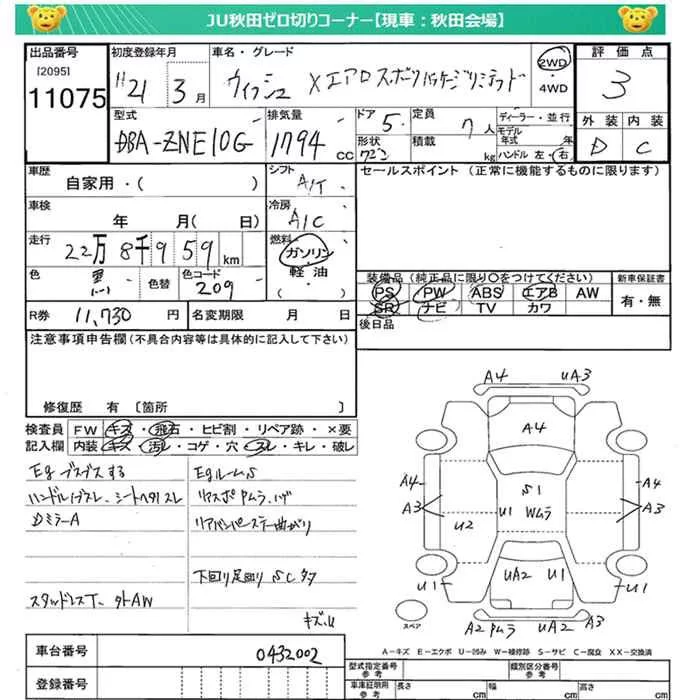 JU秋田ゼロ切りコーナー【現車：秋田会場】
出品番号 初度登録年月 車名・グレード 2WD ・ 4WD 評価点
[2095] 11075 H21 3月 ウィッシュ Xエアロスポーツパッケージリミテッド 3
型式 排気量 ドア 5 定員 7人 ディーラー・並行 外装 内装
DBA-ZNE10G 1794 CC 形状 積載 kg モデル年式 年 ハンドル 左・右 D C
車歴 シフト セールスポイント (正常に機能するものに限ります)
自家用・( ) A/T
車検 冷房
年 月( 日) A/C
走行 燃料
22万8千959km ガソリン・軽油・( )
色 黒 色替 色コード 209
装備品（純正品に限り○をつけてください） 新車保証書
PS PW ABS エアB AW 有・無
SR ナビ TV カワ
R券 11,730 円 名変期限 月 日
後日品
注意事項申告欄(不具合内容等は具体的に記入して下さい)
修復歴 有 〔箇所 〕
検査員記入欄 FW キズ・飛石・ヒビ割・リペア跡・×要
内装 キズ・汚レ・コゲ・穴・スレ・キレ・破レ
Eg ブスブスする Egルーム S
ハンドル スレ、シートヘタリスレ リアスポ Pムラ、ハゲ
Dミラー A リアバンパーステー曲がり
下回り足回り SC タタ
スタッドレスT、外AW キズ、U
A4 UA3
A4
S1
A4 A4
A3 U1 Wムラ A3
U2
U1 UA2 U1 U1
スペア A2 Pムラ UA2 A3
A－キズ E－エクボ U－凹み W－補修跡 S－サビ C－腐食 XX－交換済
車台番号 0432002
登録番号
型式指定番号 参考 類別区分番号 参考
車庫証明用 参考 長さ cm 幅 cm 高さ cm